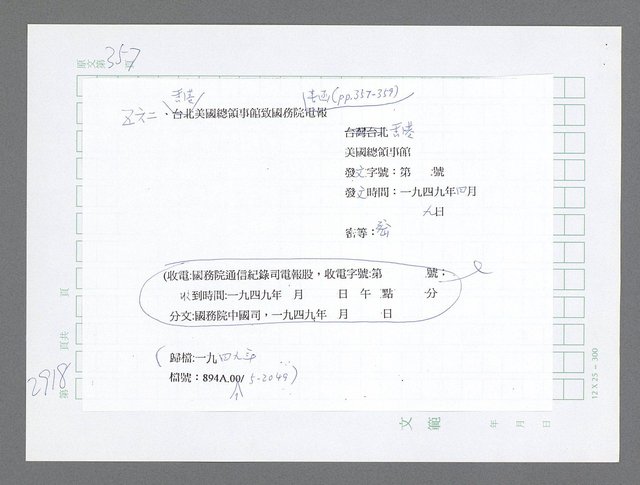 原文第357頁
香港
書函(pp.357-359)
五六二、台北美國總領事館致國務院電報
台灣台北香港
美國總領事館
發文字號：第　號
發文時間：一九四九年四月
九日
密等：密
(收電:國務院通信紀錄司電報股，收電字號:第　號：
收到時間:一九四九年　月　日　午　點　分
分文:國務院中國司，一九四九年　月　日
(歸檔:一九四九年
檔號：894A.00/5-2049)
頁共　頁
第2918
12X25-300
文範　年　月　日